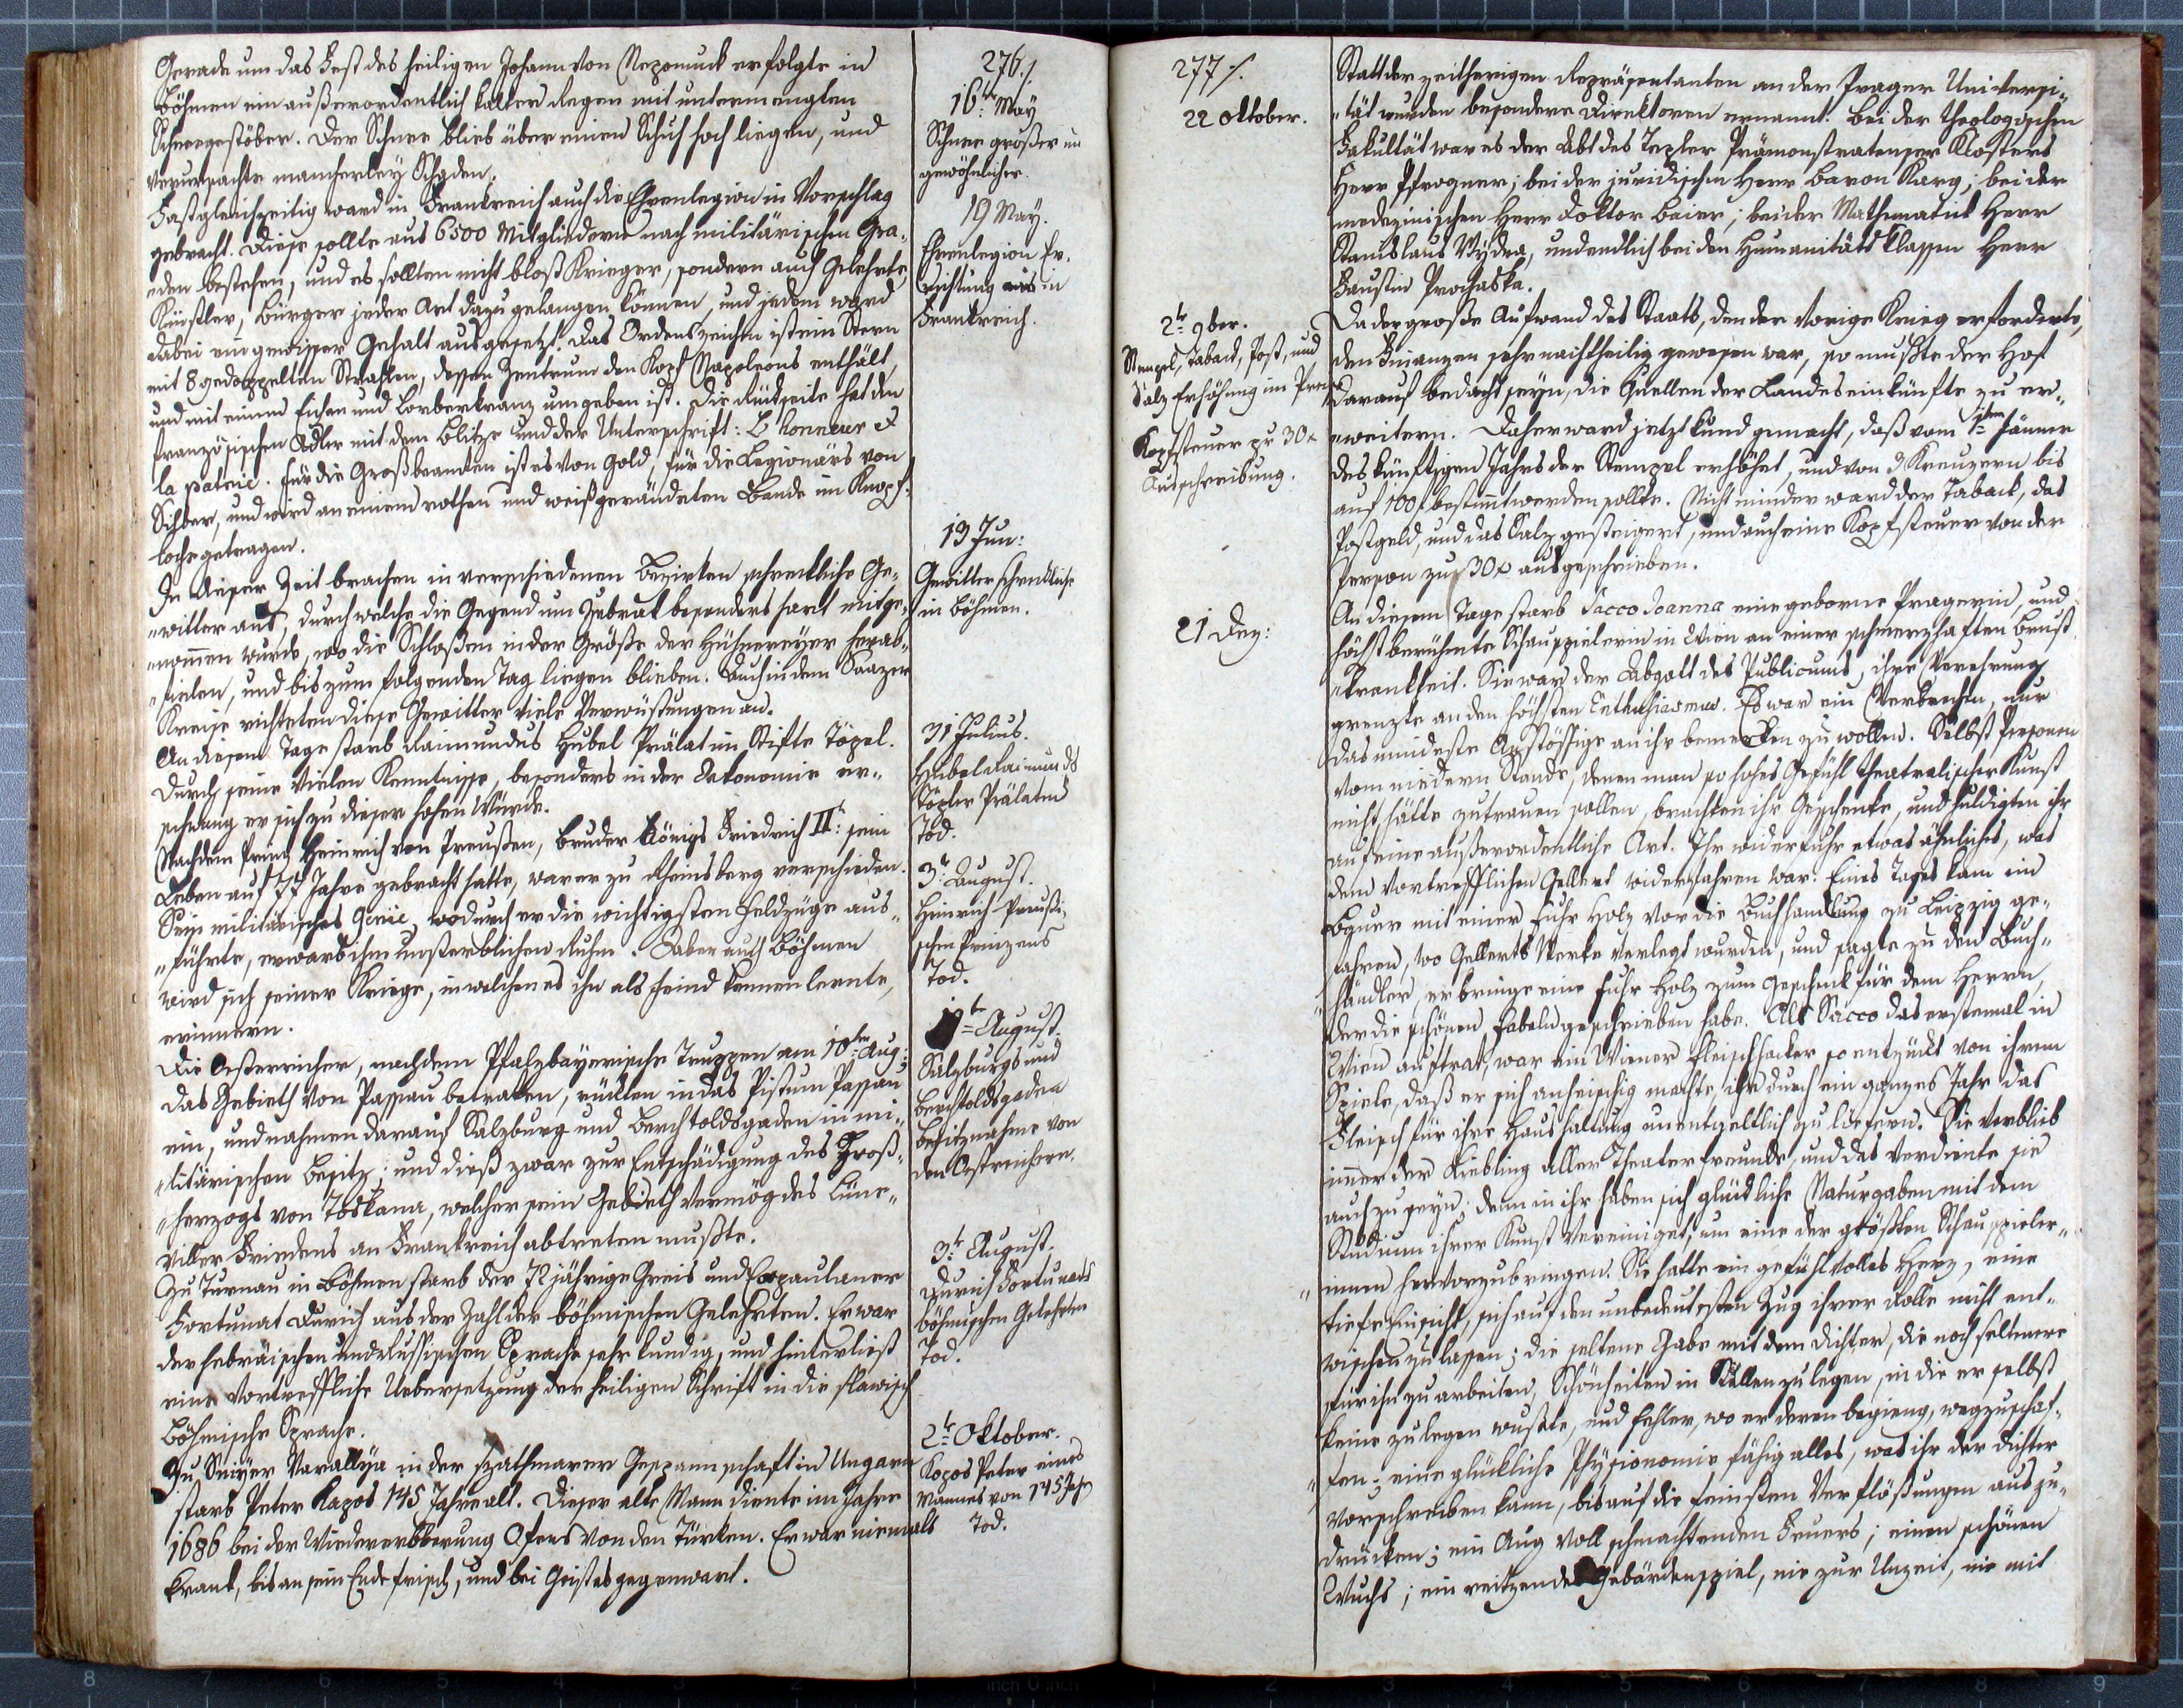 276./.
Gerade um das Fest des heiligen Johann von Nepomuck erfolgte in
Böhmen ein außerordentlich kalter Regen mit untermengten
Schneegestöber. Der Schnee blieb über einen Schuh hoch liegen, und
verursachte mancherley Schaden.
Fast gleichzeitig ward in Frankreich auch die Ehrenlegion in Vorschlag
gebracht. Diese sollte aus 6500 Mitgliedern nach militärischen Gra„
„den bestehen, und es sollten nicht bloß Krieger, sondern auch Gelehrte
Künstler, Bürger jeder Art dazu gelangen können, und jedem ward
dabei ein gewisser Gehalt ausgesetzt. Das Ordenszeichen ist ein Stern
mit 8 gedoppelten Strahlen, dessen Zentrum den Kopf Napoleons enthält,
und mit einem Eichen und Lorberkranz umgeben ist. Die Rückseite hat den
französischen Adler mit dem Blitze und der Unterschrift: L'honneur et
la patrie. Für die Großbeamten ist es von Gold, für die Legionärs von
Silber, und wird an einem rothen und weiß gerändeten Bande im Knopf„
loche getragen.
In dieser Zeit brachen in verschiedenen Bezirken schreckliche Ge„
„witter aus, durch welche die Gegend um Zebrak besonders hart mitge„
„nommen wurde, wo die Schloßen in der Größe der Hühnereyer herab„
„fielen, und bis zum folgenden Tag liegen blieben. Auch in dem Saazer
Kreise richteten diese Gewitter viele Verwüstungen an.
An diesem Tage starb Raimundus Hubel Prälat im Stifte Töpel.
Durch seine vielen Kenntnisse, besonders in der Oekonomie er„
schwang er sich zu dieser hohen Würde.
Nachdem Prinz Heinrich von Preußen, Bruder Königs Friedrich II: sein
Leben auf 77 Jahre gebracht hatte, war er zu Rheinsberg verschieden.
Sein militärisches Genie, wodurch er die wichtigsten Feldzüge aus„
„führte, erwarb ihm unsterblichen Ruhm. Aber auch Böhmen
wird sich seiner Kriege, in welchen es ihn als Feind kennen lernte,
erinnern.
Die Oesterreicher, nachdem Pfalzbayerische Truppen am 10ten Aug:
das Gebieth von Passau betraten, rückten in das Bistum Passau
ein, und nahmen darauf Salzburg und Berchtoldsgaden in mi„
„litärischen Besitz; und dieß zwar zur Entschädigung des Groß„
„herzogs von Toskana, welcher sein Gebieth vermög des Lüne„
viller Friedens an Frankreich abtreten mußte.
Zu Turnau in Böhmen starb der 72 jährige Greis und Expaulaner
Fortunat Durich aus der Zahl der böhmischen Gelehrten. Er war
der hebräischen und russischen Sprache sehr kundig, und hinterließ
eine vortreffliche Uebersetzung der heiligen Schrift in die slawisch
Böhmische Sprache.
Zu Sinyer Varallya in der szathmarer Gespannschaft in Ungarn
starb Peter Kapos 145 Jahre alt. Dieser alte Mann diente im Jahre
1686 bei der Wiedereroberung Ofens von den Türken. Er war niemals
krank, bis an sein Ende frisch, und bei Geistes gegenwart.
16te May
Schnee großer un
gewöhnlicher.
19 May.
Ehrenlegion Er„
richtung in
Frankreich.
13 Jun:
Gewitter schreckliche
in Böhmen.
31 Julius.
Hubel Raimunds
Töpler Prälaten
Tod.
3t August.
Heinrich Preußi„
schen Prinzens
Tod.
August.
Salzburgs und
Berchtoldsgaden
besitznahme von
den Oestreichern.
3t August.
Durich Fortunats
böhmischen Gelehrten
Tod.
2t Oktober.
Kopos Peter eines
Mannes von 145 Jahr
Tod.
277./.
22 Oktober.
2t 9ber.
Stempel, Taback, Post, und
Salz Erhöhung im Preise
Kopfsteuer pr 30x
Ausschreibung.
21 Dez:
Statt der zeitherigen Repräsentanten an der Prager Universi„
„tät wurden besondere Direktoren ernannt. Bei der theologischen
Fakultät war es der Abt des Tepler Prämonstratenser Klosters
Herr Pfrogner; bei der juridischen Herr Baron Karg; bei der
medezinischen Herr Doktor Baier; bei der Mathematik Herr
Stanislaus Wydra, und endlich bei den Humanitäts Klassen Herr
Faustin Prochaska.
Da der große Aufwand des Staats, den der vorige Krieg erforderte,
den Finanzen sehr nachtheilig gewesen war, so mußte der Hof
darauf bedacht seyn, die Quellen der Landeseinkünfte zu er„
„weitern. Daher ward jetzt kund gemacht, daß vom 1ten Jänner
des künftigen Jahrs der Stempel erhöhet, und von 3 Kreuzern bis
auf 100f bestimmt werden sollte. Nicht minder ward der Taback, das
Postgeld, und das Salz gesteigert, und auch eine Kopfsteuer von der
Person zu 30x ausgeschrieben.
An diesem Tage starb Sacco Joanna eine geborne Pragerin, und
höchst berühmte Schauspielerin in Wien an einer schmerzhaften Brust
krankheit. Sie war der Abgott des Publicums, ihre Verehrung
grenzte an den höchsten Enthusiasmus. Es war ein Verbrechen, nur
das mindeste Anstössige an ihr bemerken zu wollen. Selbst Personen
vom niedern Stande, denen man so hohes Gefühl theatralischer Kunst
nicht hätte zutrauen sollen, brachten ihr Geschenke, und huldigten ihr
auf eine außerordentliche Art. Ihr widerfuhr etwas ähnliches, was
dem vortrefflichen Gellert widerfahren war. Eines Tages kam ein
Bauer mit einer Fuhr Holz vor die Buchhandlung zu Leipzig ge„
fahren, wo Gellerts Werke verlegt wurden, und sagte zu den Buch„
händler, er bringe eine Fuhr Holz zum Geschenk für dem Herrn,
der die schönen Fabeln geschrieben habe. Als Sacco das erstemal in
Wien auftrat, war ein Wiener Fleischhacker so entzückt von ihrem
Spiele, daß er sich anheischig machte, ihr durch ein ganzes Jahr das
Fleisch für ihre Haushaltung unentgeltlich zu liefern. Sie verblieb
immer der Liebling aller Theaterfreunde, und das verdiente sie
auch zu seyn; denn in ihr haben sich glückliche Naturgaben mit dem
Studium ihrer Kunst vereiniget, um eine der größten Schauspieler„
„innen hervorzubringen. Sie hatte ein gefühlvolles Herz, eine
tiefe Einsicht, sich auf den unbedeutesten Zug ihrer Rolle nicht ent„
wischen zu lassen; die seltene Gabe mit dem Dichter, die noch seltenere
für ihn zu arbeiten, Schönheiten in Stellen zu legen, in die er selbst
keine zu legen wußte, und Fehler, wo er deren begieng, wegzuschaf„
„fen; eine glückliche Physionomie fähig alles, was ihr der Dichter
vorschreiben kann, bis auf die feinsten Verflößungen auszu„
drücken; ein Aug voll schmachtenden Feuers; einen schönen
Wuchs; ein reitzendes Gebärdenspiel, nie zur Unzeit, nie mit